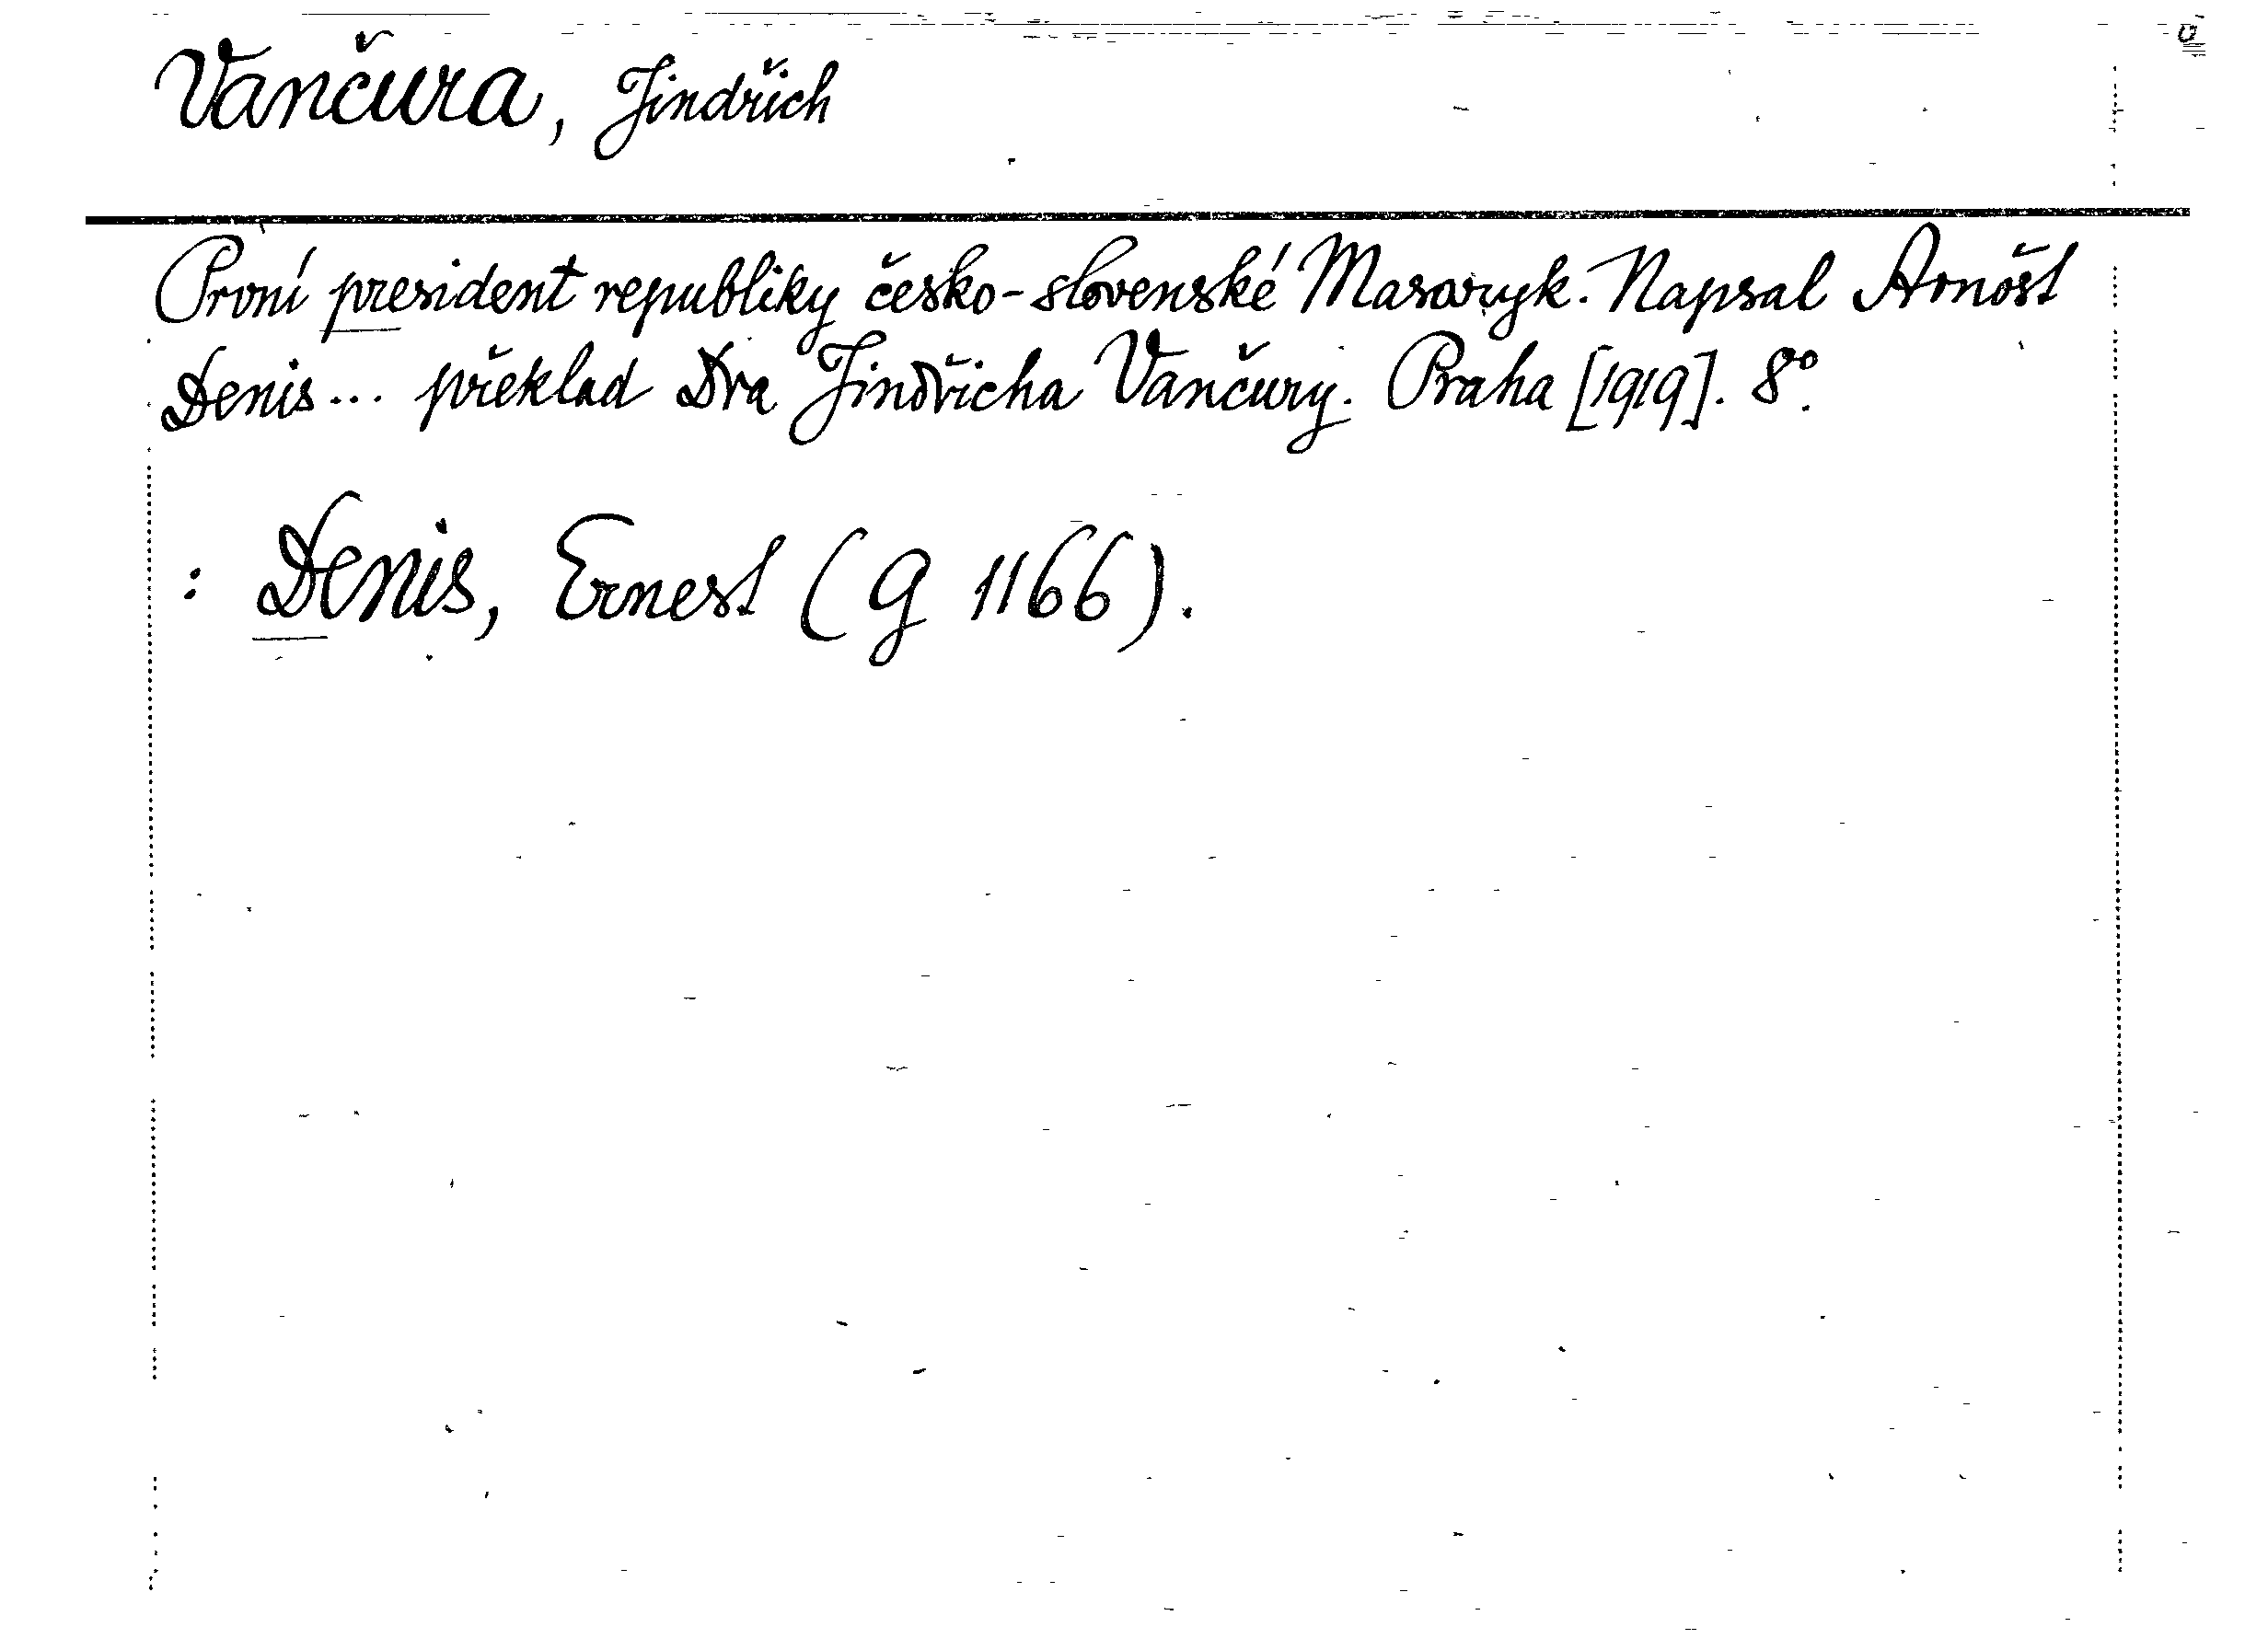 Vančura, Jindřich
První president republiky česko-slovenské Masaryk. Napsal Arnošt
Denis... překlad Dra Jindřicha Vančury. Praha [1919]. 8°.
: Denis, Ernest (G 1166).